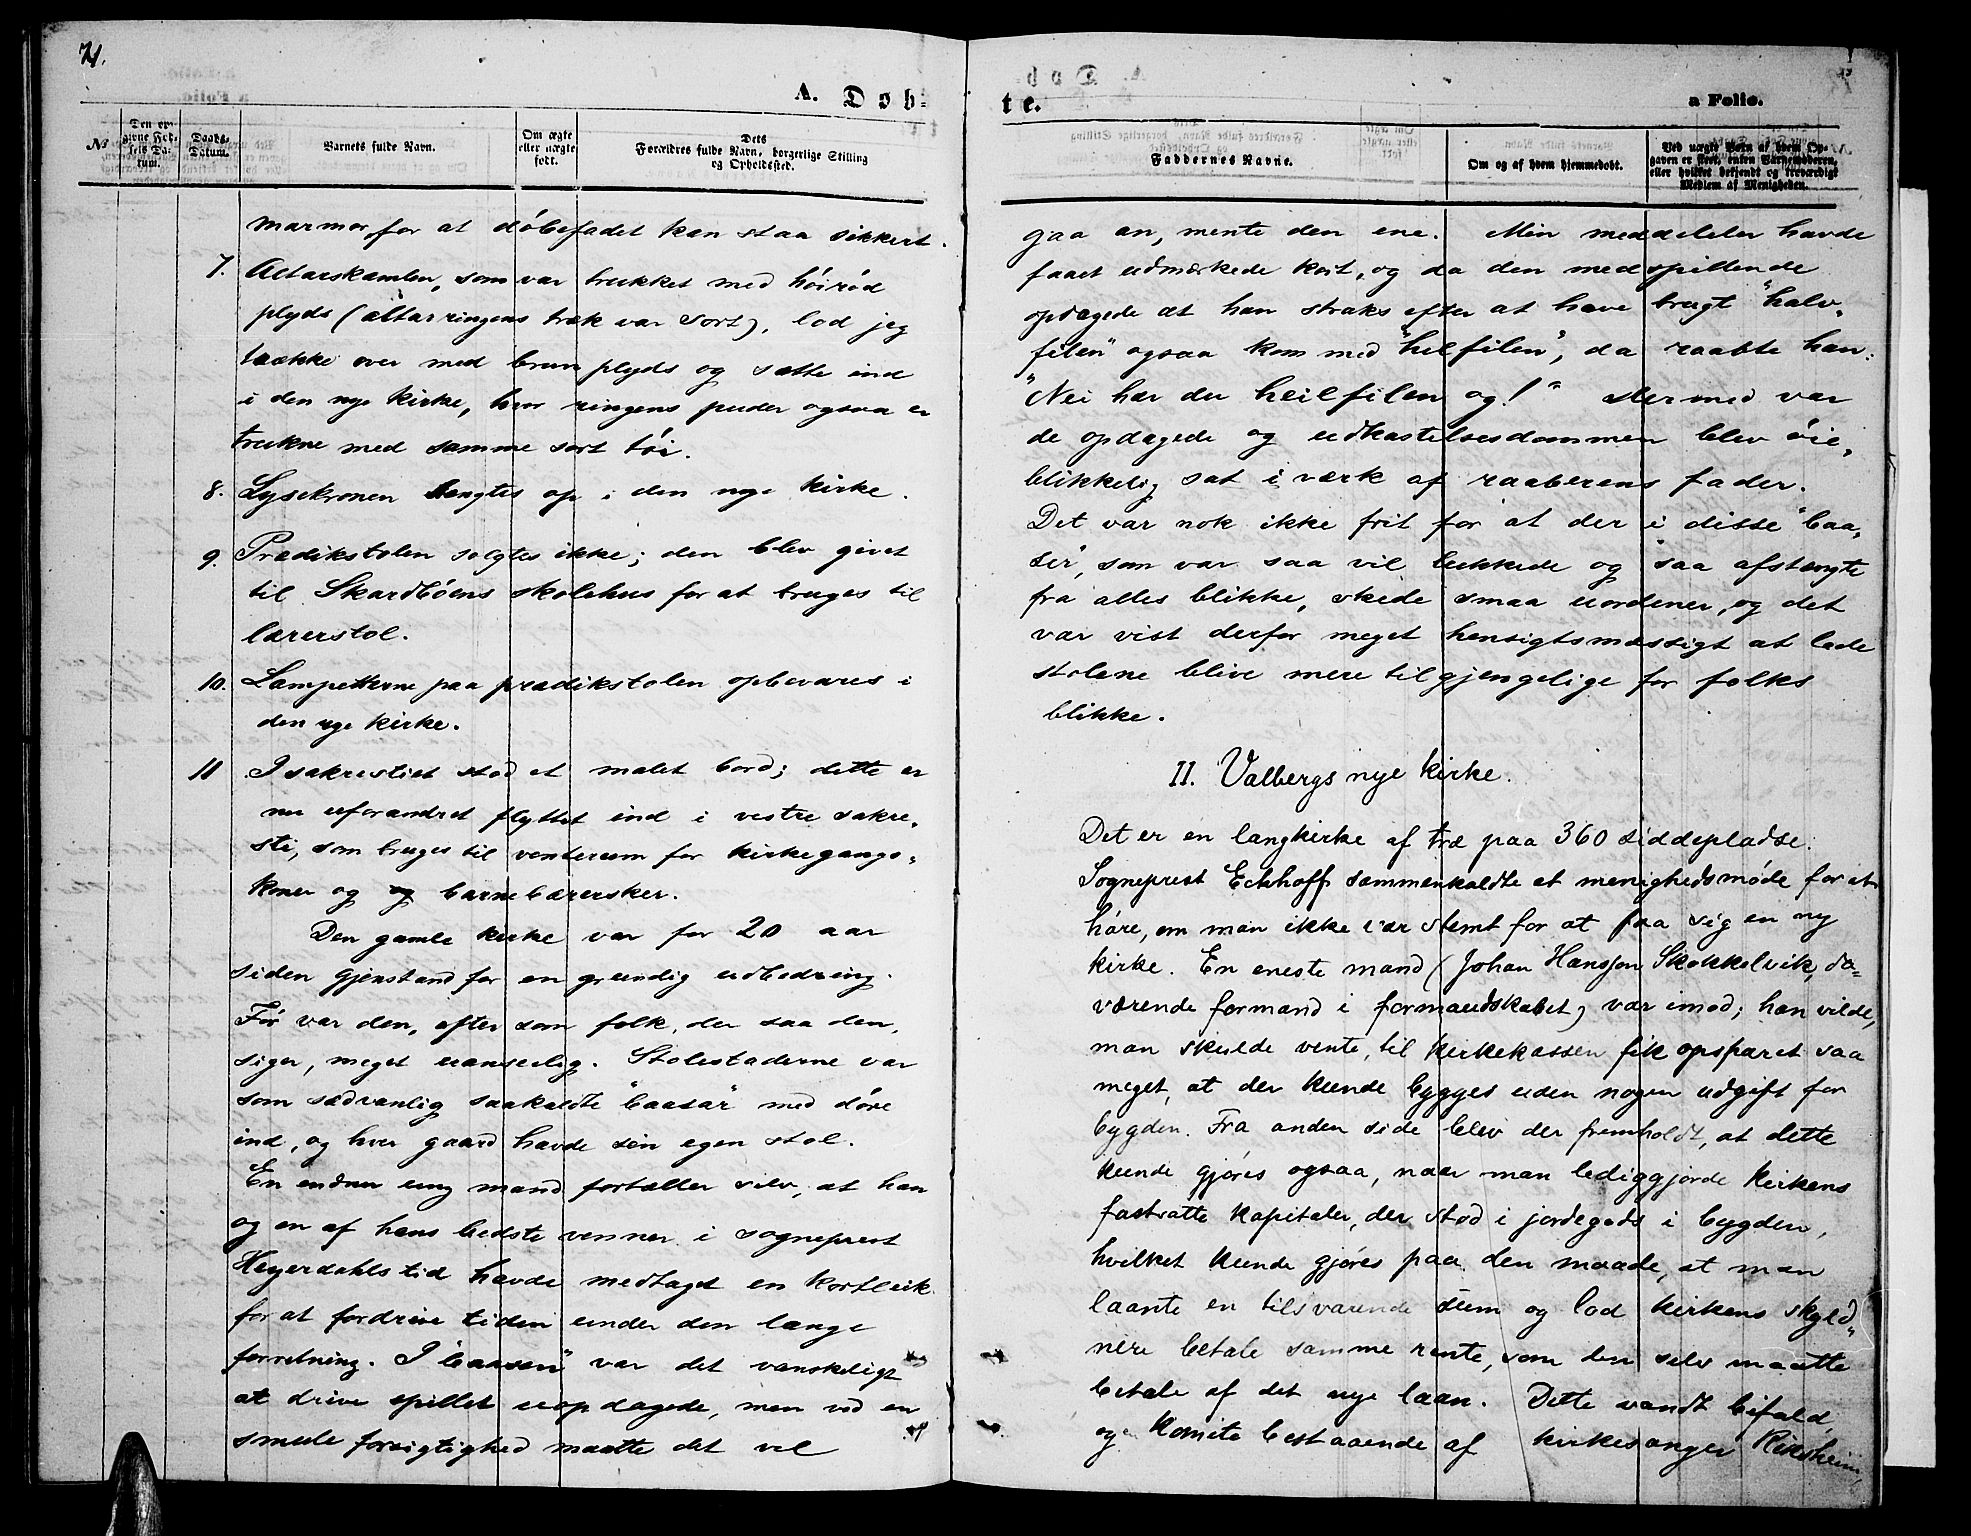 71.
A. Døb-
№
Den op-
givne Fød-
sels Da-
tum.
Daabs-
Datum.
Barnets fulde Navn.
Om ægte
eller uægte
født.
Dets
Forældres fulde Navn, borgerlige Stilling
og Opholdssted.
marmor, for at döbefadet kan staa sikkert.
7. Altarskamlen, som var trukket med höiröd
plyds (altarringens træk var sort), lod jeg
trække over med brun plyds og sætte ind
i den nye kirke, hvor ringens puder ogsaa er
trukne med samme sort töi.
8. Lysekronen hængtes op i den nye kirke.
9. Prædikstolen solgtes ikke; den blev givet
til Skardböens skolehus for at bruges til
lærerstol.
10. Lampetterne paa prædikstolen opbevares i
den nye kirke.
11 I sakrestiet stod et malet bord; dette er
nu uforandret flyttet ind i vestre sakre-
sti, som bruges til venterum for kirkegangs-
koner og og barnebærersker.
Den gamle kirke var for 20 aar
siden gjenstand for en grundig udbedring.
Før var den, efter som folk, der saa den,
siger, meget uanseelig. Stolestaderne var
som sædvanlig saakaldte "baasar" med döre
ind, og hver gaard havde sin egen stol.
En endnu ung mand fortæller selv, at han
og en af hans bedste venner i sogneprest
Heyerdahls tid havde medtaget en kortleik
for at fordrive tiden under den lange
forretning. I "baasen" var det vanskeligt
at drive spillet uopdagede, men ved en
smule forsigtighed maatte det vel
te.
a Folio.
Faddernes Navne.
Om og af hvem hjemmedøbt.
Ved uægte Børn af hvem Op-
gaven er skeet, enten Barnemoderen,
eller hvilket bekjendt og troværdigt
Medlem af Menigheden.
gaa an, mente den ene. Min meddeler havde
faaet udmærkede kort, og da den medspillende
opdagede at han straks efter at have brugt "halv-
filen" ogsaa kom med "helfilen", da raabte han:
"Nei har du heilfilen og!" Dermed var
de opdagede og udkastelsesdommen blev öie-
blikkelig sat i værk af raaberens fader.
Det var nok ikke frit for at der i disse "baa-
ser", som var saa vel lukkede og saa afstengte
fra alles blikke, skede smaa uordener, og det
var vist derfor meget hensigtsmæssigt at lade
stolene blive mere tilgjengelige for folks
blikke.
II. Valbergs nye kirke.
Det er en langkirke af træ paa 360 siddepladse.
Sogneprest Eckhoff sammenkaldte et menighedsmøde for at
höre, om man ikke var stemt for at faa sig en ny
kirke. En eneste mand (Johan Hansson Skokkelvik, da-
værende formand i formandskabet) var imod; han vilde,
man skulde vente, til kirkekassen fik opsparet saa
meget, at der kunde bygges uden nogen udgift for
bygden. Fra anden side blev der fremholdt, at dette
kunde gjöres ogsaa, naar man lediggjorde kirkens
fastsatte kapitaler, der stod i jordegods i bygden,
hvilket kunde gjöres paa den maade, at man
laante en tilsvarende sum og lod kirkens skyld-
nere betale samme rente, som den selv maatte
betale af det nye laan. Dette vandt bifald,
og komite bestaaende af kirkesanger